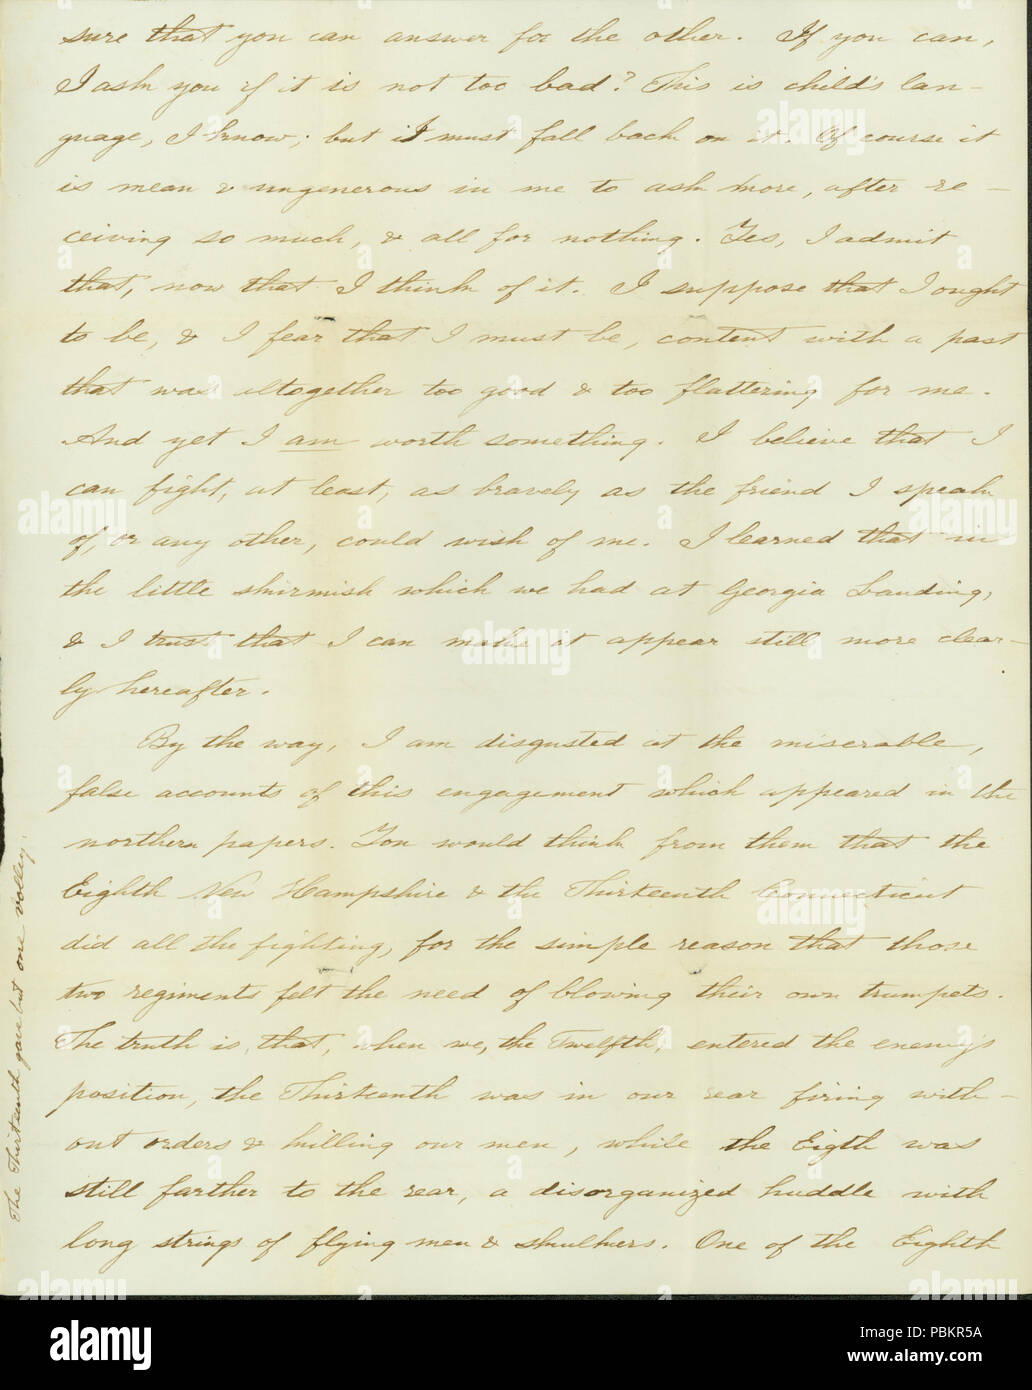 sure that you can answer for the other. If you can,
I ask you if it is not too bad? This is child's lan-
guage, I know; but it must fall back on it. Of course it
is mean & ungenerous in me to ask more, after re-
ceiving so much, & all for nothing. Yes, I admit
that, now that I think of it. I suppose that I ought
to be, & I fear that I must be, content with a past
that was altogether too good & too flattering for me.
And yet I am worth something. I believe that I
can fight, at least, as bravely as the friend I speak
of, or any other, could wish of me. I learned that in
the little skirmish which we had at Georgia Landing,
& I trust that I can make it appear still more clear-
ly hereafter.
By the way, I am disgusted at the miserable,
false accounts of this engagement which appeared in the
northern papers. You would think from them that the
Eighth New Hampshire & the Thirteenth Connecticut
did all the fighting, for the simple reason that those
two regiments felt the need of blowing their own trumpets.
The truth is, that, when we, the Twelfth, entered the enemy's
position, the Thirteenth was in our rear firing with-
out orders & killing our men, while the Eigth was
still farther to the rear, a disorganized huddle with
long strings of flying men & skulkers. One of the Eighth
The Thirteenth gave but one volley.
alamy
Image ID: PBKR5A
www.alamy.com